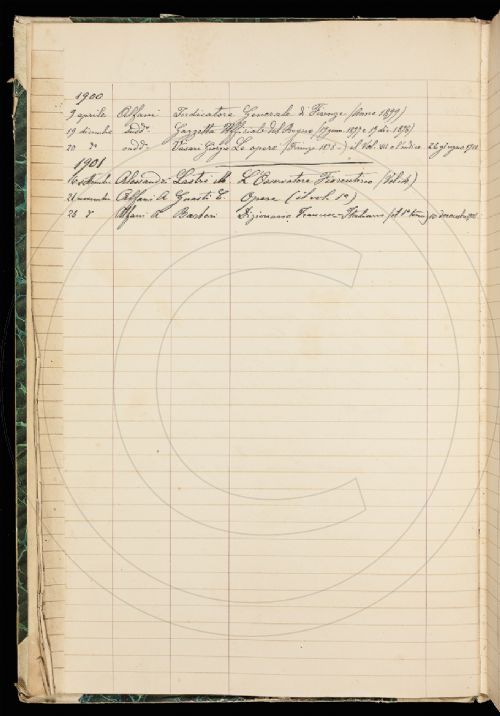 1900
9 aprile Alfani Indicatore Generale di Firenze (Anno 1899)
19 dicembre Gazzetta Ufficiale del Regno (17 genn. 1877 e 19 dic. 1876)
20 do Vasari Giorgio Le opere (Firenze 1878-) il Vol. VIII e l'indice 26 giugno 1901
1901
16 Alessandri Lastri M. L'Osservatore Fiorentino (Vol. 4)
21 novembre Alfani A. Guasti C. Opere (il vol. 1o)
28 do Alfani A. Barberi Dizionario Francese-Italiano (il 1o